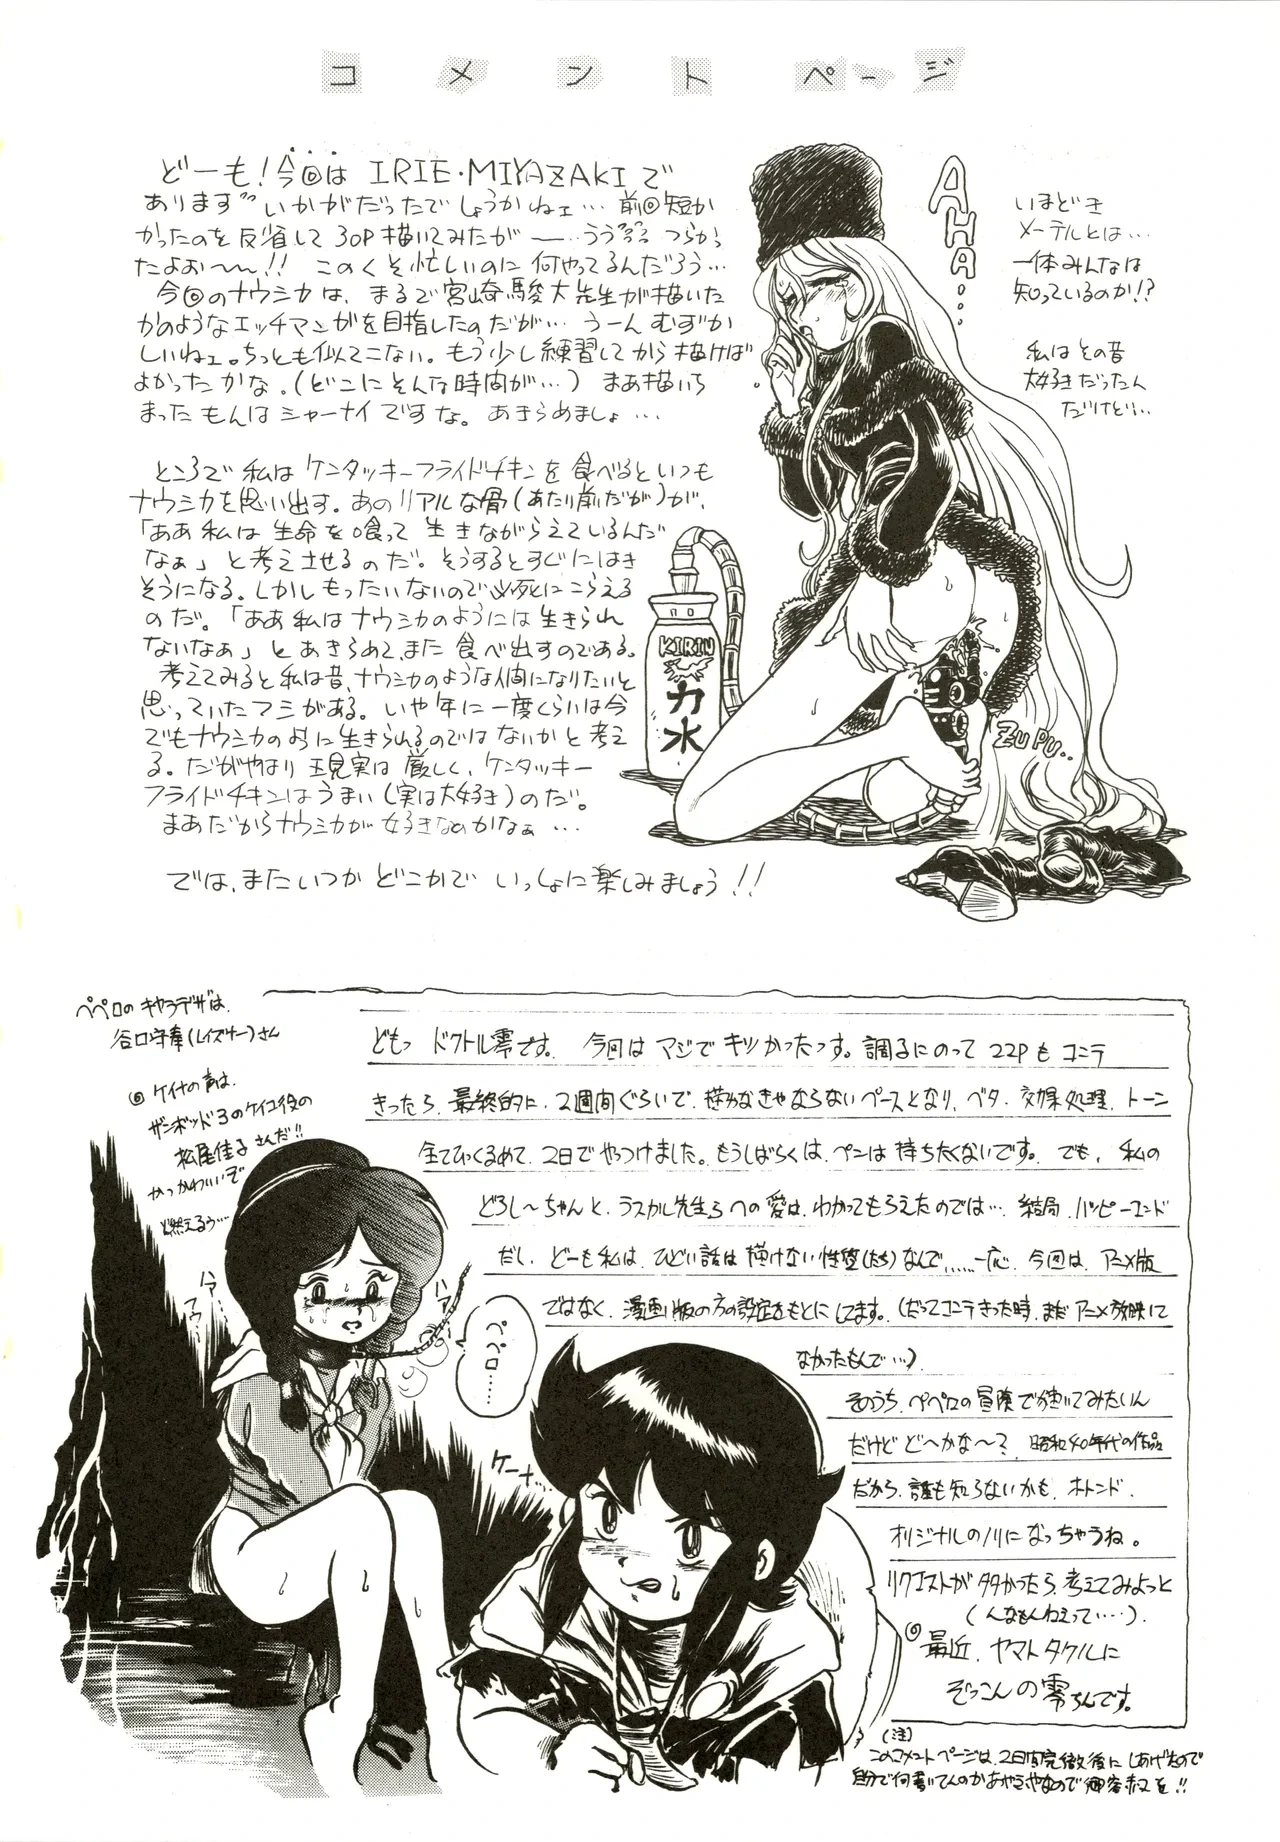 コメントページ
どーも！今回は IRIE・MIYAZAKIで
あります゛いかがだったでしょうかねェ… 前回短か
かったのを反省して30P描いてみたが ――…うう… つらかっ
たよお〜〜!! このくそ忙しいのに何やってるんだろう…
今回のナウシカは、まるで宮崎駿大先生が描いた
かのようなエッチマンガを目指したのだが… うーんむずか
しいねェ。ちっとも似てこない。もう少し練習してから描けば
よかったかな。(どこにそんな時間が…) まあ描いち
まったもんはシャーナイですな。あきらめましょ…
ところで私はケンタッキーフライドチキンを食べるといつも
ナウシカを思い出す。あのリアルな骨(あたり前だが)が、
「ああ私は生命を喰って生きながらえているんだ
なぁ」と考えさせるのだ。そうするとすぐにはき
そうになる。しかしもったいないので必死にこらえる
のだ。「ああ私はナウシカのようには生きられ
ないなぁ」とあきらめて、また食べ出すのである。
考えてみると私は昔、ナウシカのような人間になりたいと
思っていたフシがある。いや年に一度くらいは今
でもナウシカのように生きられるのではないかと考え
る。だがやはり現実は厳しく、ケンタッキー
フライドチキンはうまい(実は大好き)のだ。
まあだからナウシカが好きなのかなぁ…
では、またいつかどこかでいっしょに楽しみましょう!!
AHA…
いまどき
メーテルとは…
一体みんなは
知っているのか!?
私はその昔
大好きだったん
だけどい…
KIRIN
力水
ZUPU..
ペペロのキャラデザは、
谷口守泰(レイズナー)さん
◎ケイナの声は、
ザンボット3のケイコ役の
松尾佳子さんだ!!
やっかわいいぞ
燃えるう…
ハァ
ハァ
ペペロ……
ケーナ…
どもっ ドクトル零です。今回はマジでキツかったっす。調子にのって22Pもコンテ
きったら、最終的に、2週間ぐらいで、描かなきゃならないペースとなり、ベタ、効果処理、トーン
全てひっくるめて、2日でやっつけました。もうしばらくは、ペンは持ちたくないです。でも、私の
どろし〜ちゃんと、ラスカル先生らへの愛は、わかってもらえたのでは…、結局、ハッピーエンド
だし、どーも私は、ひどい話は描けない性壁(たち)なんで……一応、今回は、アニメ版
ではなく、漫画版の方の設定をもとにしてます。(だってコンテきった時、まだアニメ放映して
なかったもんで…)
そのうち、ペペロの冒険で描いてみたいん
だけど どーかな〜? 昭和40年代の作品
だから、誰も知らないかも、ホトンド、
オリジナルのノリになっちゃうね。
リクエストが多かったら、考えてみよっと
(んなもんねえって…)。
◎最近、ヤマトタケルに
ぞっこんの零ちんです。
(注)
このコメントページは、2日間完徹後にしあげたので
自分で何書いてんのかあやうやなので御容赦を!!